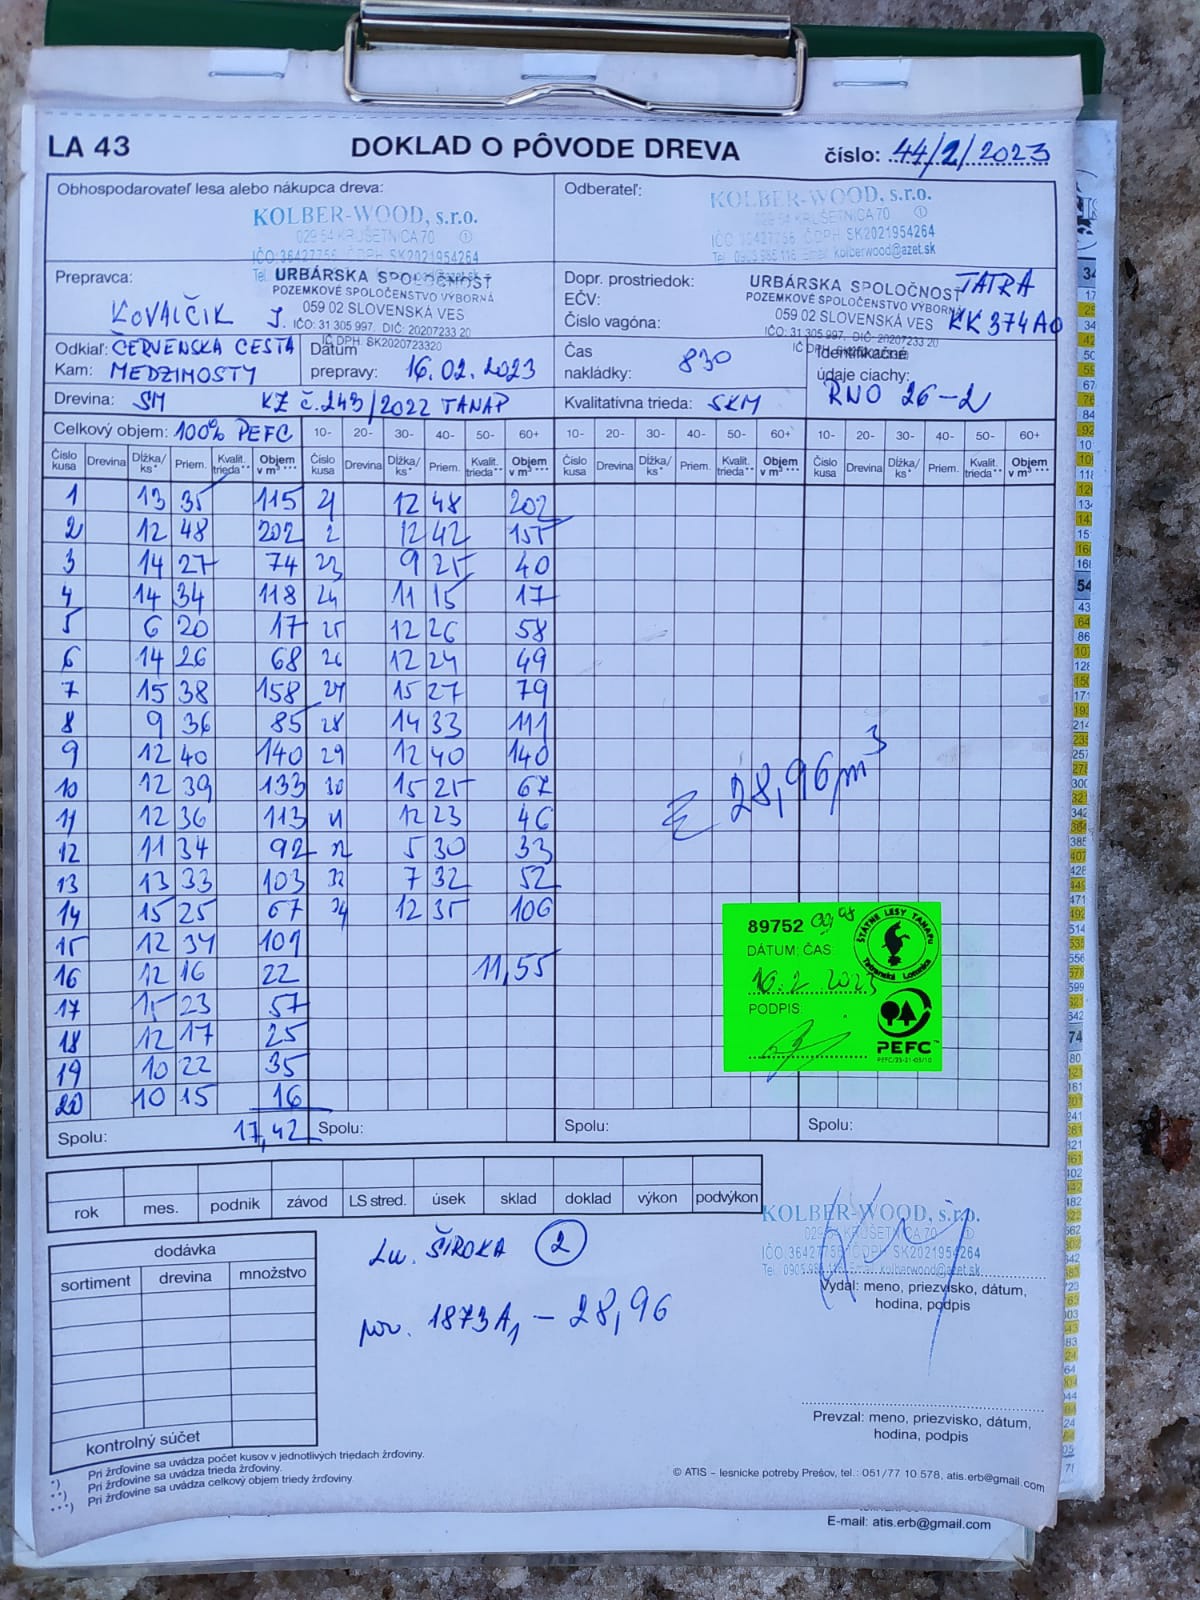 LA 43 DOKLAD O PÔVODE DREVA číslo: 44/2/2023
Obhospodarovateľ lesa alebo nákupca dreva:
KOLBER-WOOD, s.r.o.
029 54 KRUŠETNICA 70 ①
IČO: 36427756 IČ DPH: SK2021954264
Odberateľ:
KOLBER-WOOD, s.r.o.
029 54 KRUŠETNICA 70 ①
IČO: 36427756 IČ DPH: SK2021954264
Tel. 0905 986 116 Email: kolberwood@azet.sk
Prepravca:
URBÁRSKA SPOLOČNOSŤ
POZEMKOVÉ SPOLOČENSTVO VÝBORNÁ
059 02 SLOVENSKÁ VES
IČO: 31 305 997, DIČ: 20207233 20
IČ DPH: SK2020723320
KOVALČIK J.
Dopr. prostriedok: TATRA
EČV:
Číslo vagóna: KK 374AO
URBÁRSKA SPOLOČNOSŤ
POZEMKOVÉ SPOLOČENSTVO VÝBORNÁ
059 02 SLOVENSKÁ VES
IČO: 31 305 997, DIČ: 20207233 20
Odkiaľ: ČERVENSKA CESTA
Kam: MEDZIMOSTY
Dátum prepravy: 16.02.2023
Čas nakládky: 830
Identifikačné údaje ciachy: RNO 26-2
Drevina: SM KZ č.243/2022 TANAP
Kvalitatívna trieda: SKM
Celkový objem: 100% PEFC 10- 20- 30- 40- 50- 60+ 10- 20- 30- 40- 50- 60+ 10- 20- 30- 40- 50- 60+
Číslo kusa Drevina Dĺžka/ks* Priem. Kvalit. trieda** Objem v m³*** Číslo kusa Drevina Dĺžka/ks* Priem. Kvalit. trieda** Objem v m³*** Číslo kusa Drevina Dĺžka/ks* Priem. Kvalit. trieda** Objem v m³*** Číslo kusa Drevina Dĺžka/ks* Priem. Kvalit. trieda** Objem v m³***
1 13 35 115 21 12 48 202
2 12 48 202 2 12 42 155
3 14 27 74 23 9 25 40
4 14 34 118 24 11 15 17
5 6 20 17 25 12 26 58
6 14 26 68 26 12 24 49
7 15 38 158 27 15 27 79
8 9 36 85 28 14 33 111
9 12 40 140 29 12 40 140
10 12 39 133 30 15 25 67
11 12 36 113 12 23 46
12 11 34 92 32 5 30 33
13 13 33 103 33 7 32 52
14 15 25 67 34 12 35 106
15 12 34 101
16 12 16 22 11,55
17 15 23 57
18 12 17 25
19 10 22 35
20 10 15 16
Σ 28,96m³
89752
DÁTUM, ČAS
16.2 2023
PODPIS:
ŠTÁTNE LESY TANAPU
Tatranská Lomnica
PEFC™
PEFC/23-21-03/10
Spolu: 17,42 Spolu: Spolu: Spolu:
rok mes. podnik závod LS stred. úsek sklad doklad výkon podvýkon
dodávka
sortiment drevina množstvo
kontrolný súčet
Lu. ŠIROKA ②
por. 1873A1 – 28,96
KOLBER-WOOD, s.r.o.
029 54 KRUŠETNICA 70 ①
IČO: 36427756 IČ DPH: SK2021954264
Vydal: meno, priezvisko, dátum,
hodina, podpis
Prevzal: meno, priezvisko, dátum,
hodina, podpis
*) Pri žrďovine sa uvádza počet kusov v jednotlivých triedach žrďoviny.
**) Pri žrďovine sa uvádza trieda žrďoviny.
***) Pri žrďovine sa uvádza celkový objem triedy žrďoviny.
© ATIS – lesnícke potreby Prešov, tel.: 051/77 10 578, atis.erb@gmail.com
E-mail: atis.erb@gmail.com